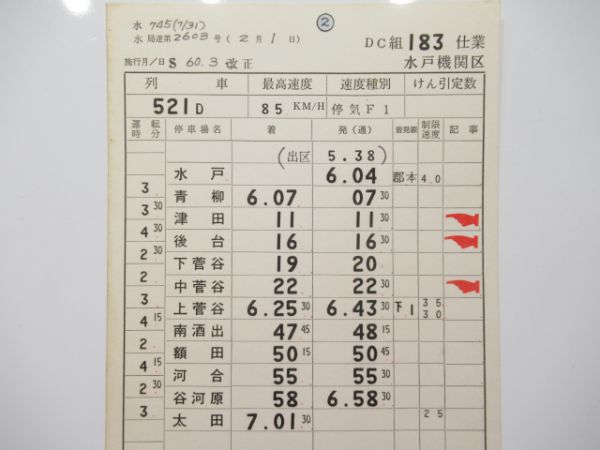 ②
水 745(7/31)
水 局達第2603号 (2月1日)
DC組 183 仕業
施行月/日 S 60.3 改正
水戸機関区
列 車 最高速度 速度種別 けん引定数
521D 85 KM/H 停気F1
運転時分 停車場名 着 発(通) 着発線 制限速度 記事
(出区 5.38)
水戸 6.04 郡本 40
3
青柳 6.07 07 30
3 30
津田 11 11 30
4 30
後台 16 16 30
2 30
下菅谷 19 20
2
中菅谷 22 22 30
3
上菅谷 6.25 30 6.43 30 下1 35 30
4 15
南酒出 47 45 48 15
2
額田 50 15 50 45
4 30
河合 55 55 30
2 30
谷河原 58 6.58 30
3
太田 7.01 30 25